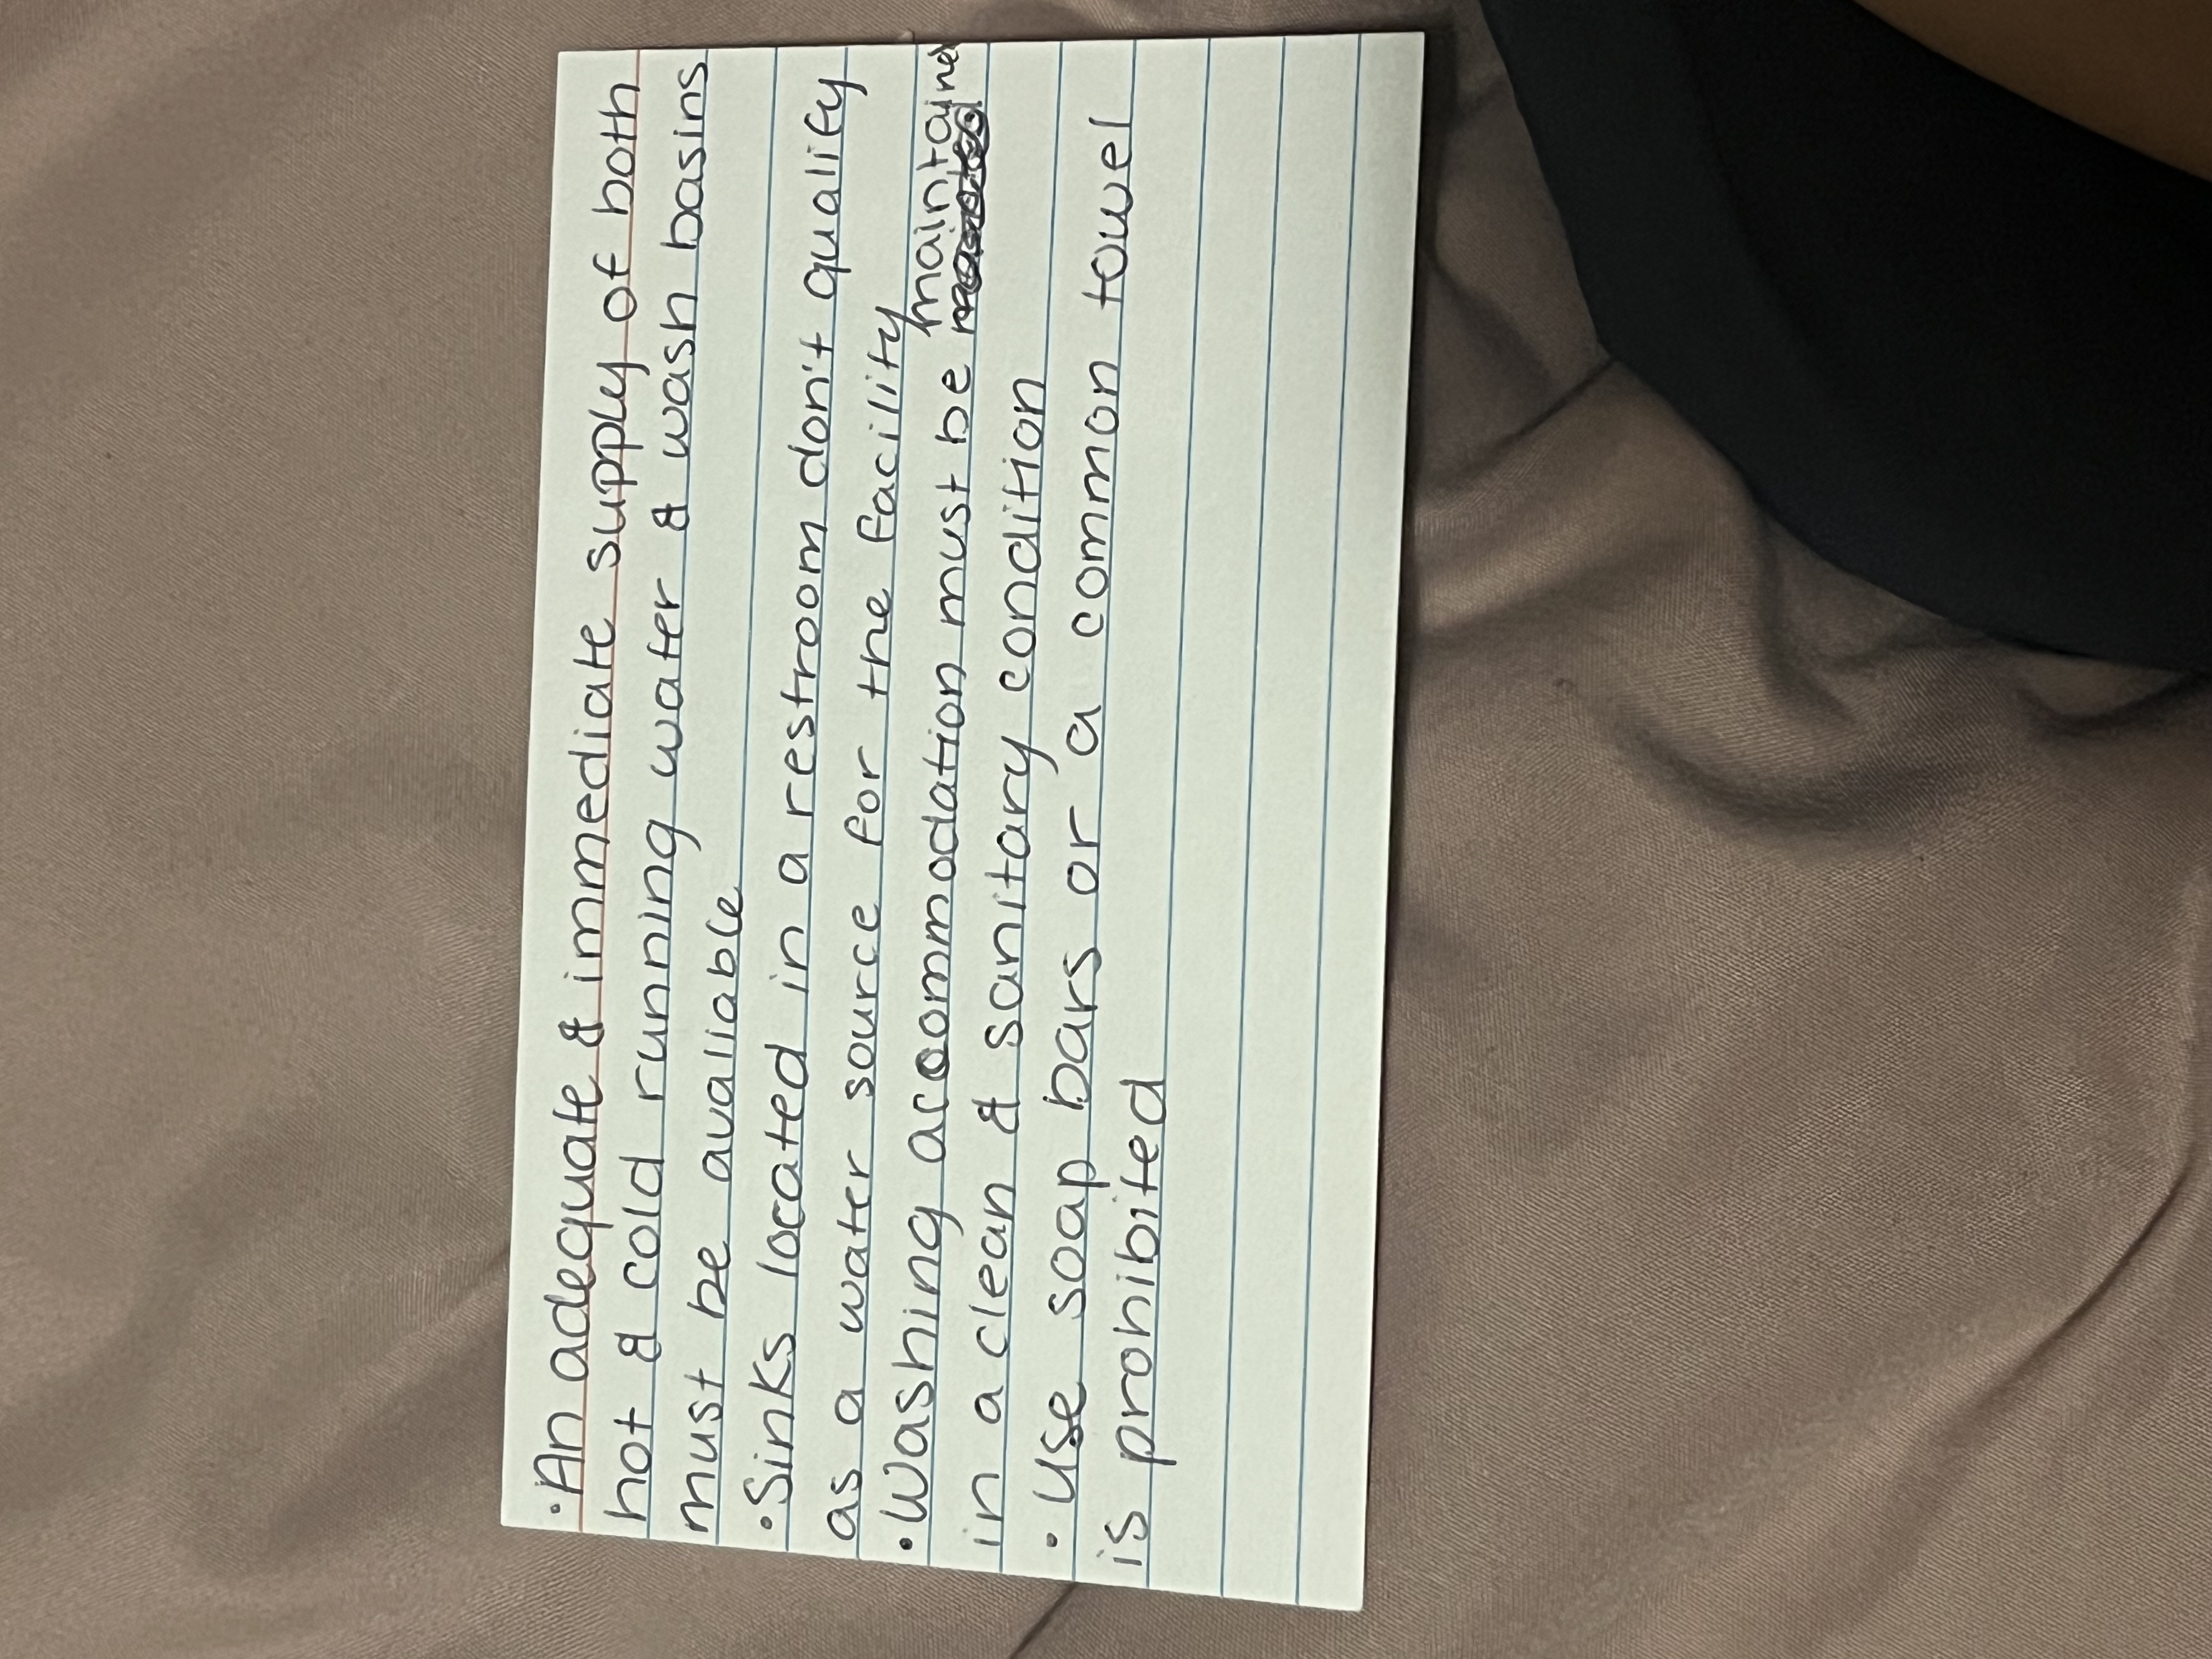 ·An adequate & immediate supply of both
hot & cold running water & wash basins
must be avaliable
·Sinks located in a restroom don't qualify
as a water source for the facility
·Washing accommodation must be maintained
in a clean & sanitary condition
·Use soap bars or a common towel
is prohibited